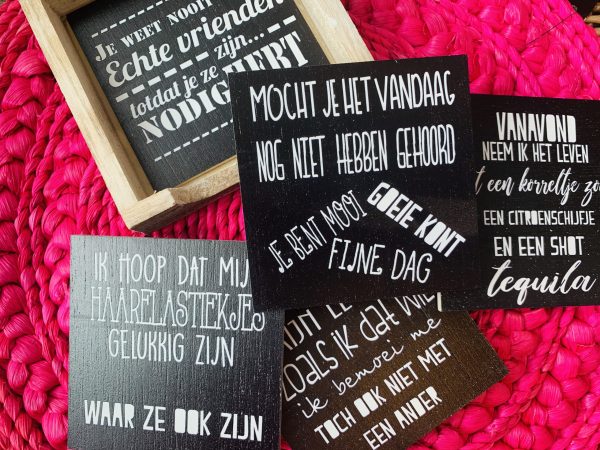 JE WEET NOOIT
Echte vrienden
zijn...
totdat je ze
NODIG HEBT
MOCHT JE HET VANDAAG
NOG NIET HEBBEN GEHOORD
JE BENT MOOI
GOEIE KONT
FIJNE DAG
VANAVOND
NEEM IK HET LEVEN
een korreltje
EEN CITROENSCHIJFJE
EN EEN SHOT
tequila
IK HOOP DAT MIJ
HAARELASTIEKJES
GELUKKIG ZIJN
WAAR ZE OOK ZIJN
ZOALS IK DAT WIL
ik bemoei me
TOCH OOK NIET MET
EEN ANDER